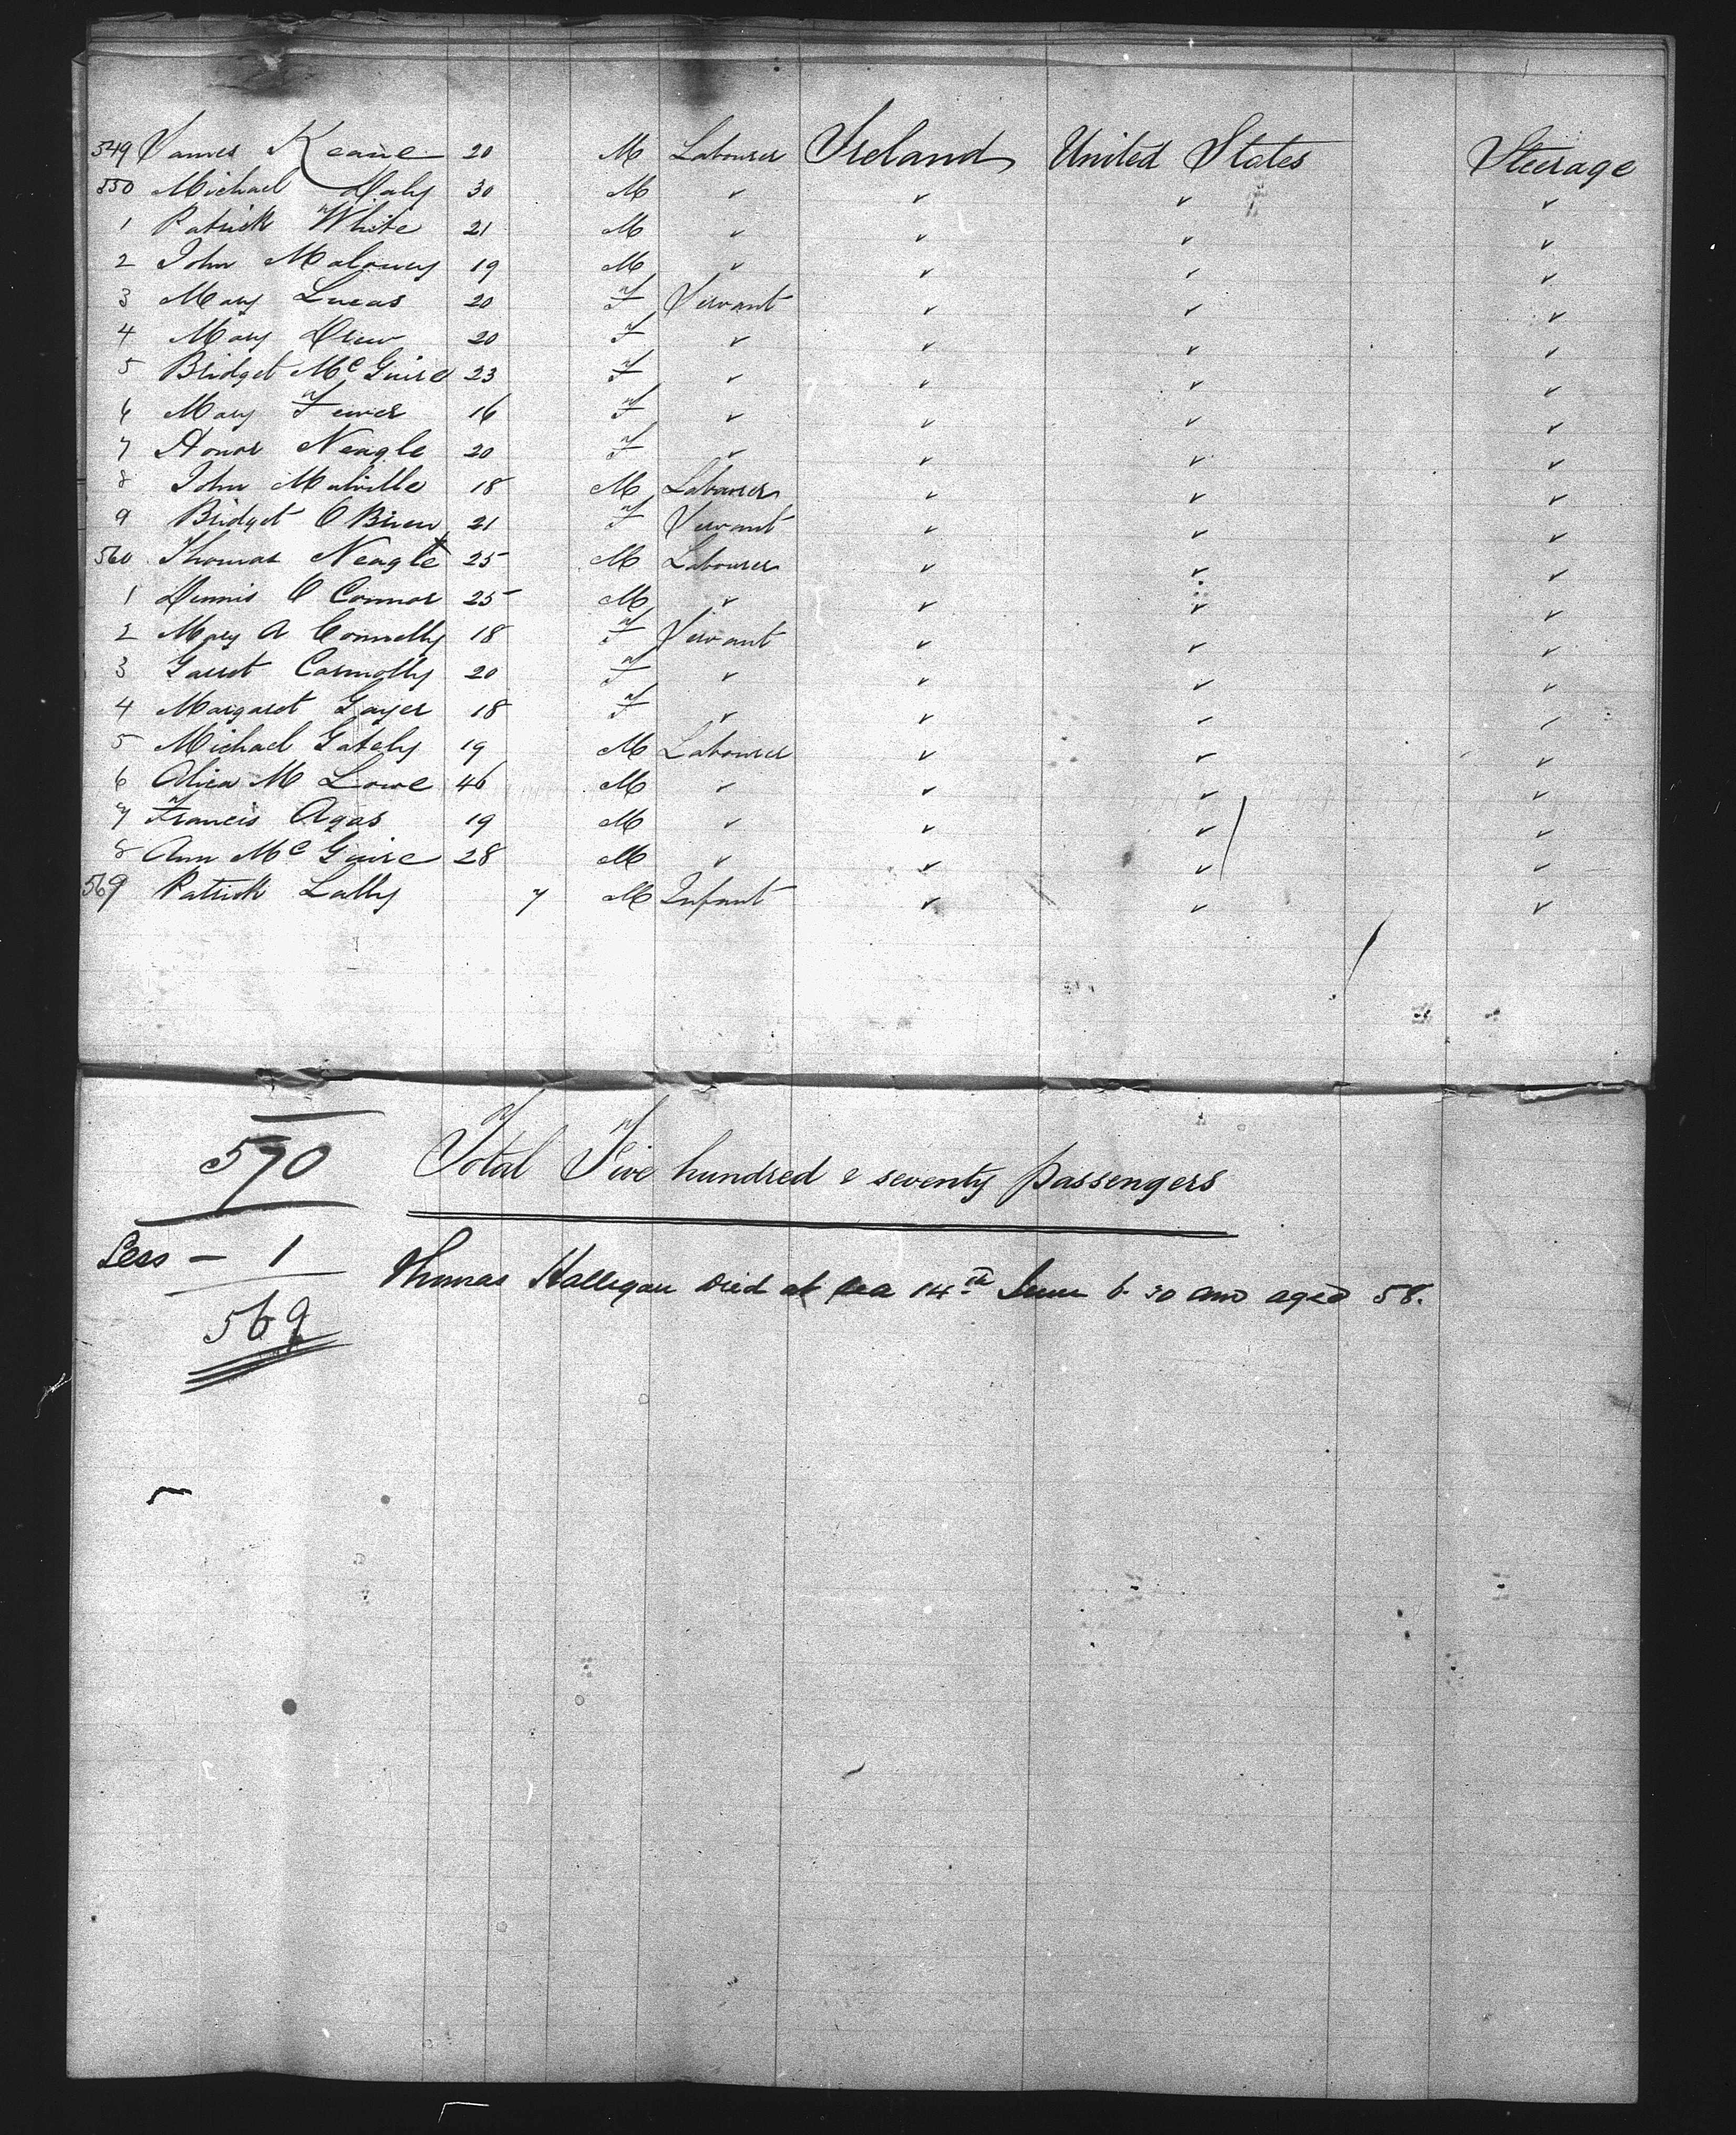 549 James Keane 20 M Labourer Ireland United States Steerage
550 Michael Daly 30 M ✓ ✓ ✓ ✓
1 Patrick White 21 M ✓ ✓ ✓ ✓
2 John Maloney 19 M ✓ ✓ ✓ ✓
3 Mary Lucas 20 F Servant ✓ ✓ ✓
4 Mary Drew 20 F ✓ ✓ ✓ ✓
5 Bridget McGuire 23 F ✓ ✓ ✓ ✓
6 Mary Fewer 16 F ✓ ✓ ✓ ✓
7 Honor Neagle 20 F ✓ ✓ ✓ ✓
8 John Mulville 18 M Labourer ✓ ✓ ✓
9 Bridget O Brien 21 F Servant ✓ ✓ ✓
560 Thomas Neagle 25 M Labourer ✓ ✓ ✓
1 Dennis O Connor 25 M ✓ ✓ ✓ ✓
2 Mary A Connolly 18 F Servant ✓ ✓ ✓
3 Garret Connolly 20 F ✓ ✓ ✓ ✓
4 Margaret Gayer 18 F ✓ ✓ ✓ ✓
5 Michael Gately 19 M Labourer ✓ ✓ ✓
6 M Lowe 46 M ✓ ✓ ✓ ✓
7 Francis Agas 19 M ✓ ✓ ✓ ✓
8 Ann McGuire 28 M ✓ ✓ ✓ ✓
569 Patrick Lally 7 M Infant ✓ ✓ ✓
570 Total Five hundred & seventy passengers
Less — 1 Thomas Halligan died at sea 14th June 6-30 am aged 58.
569